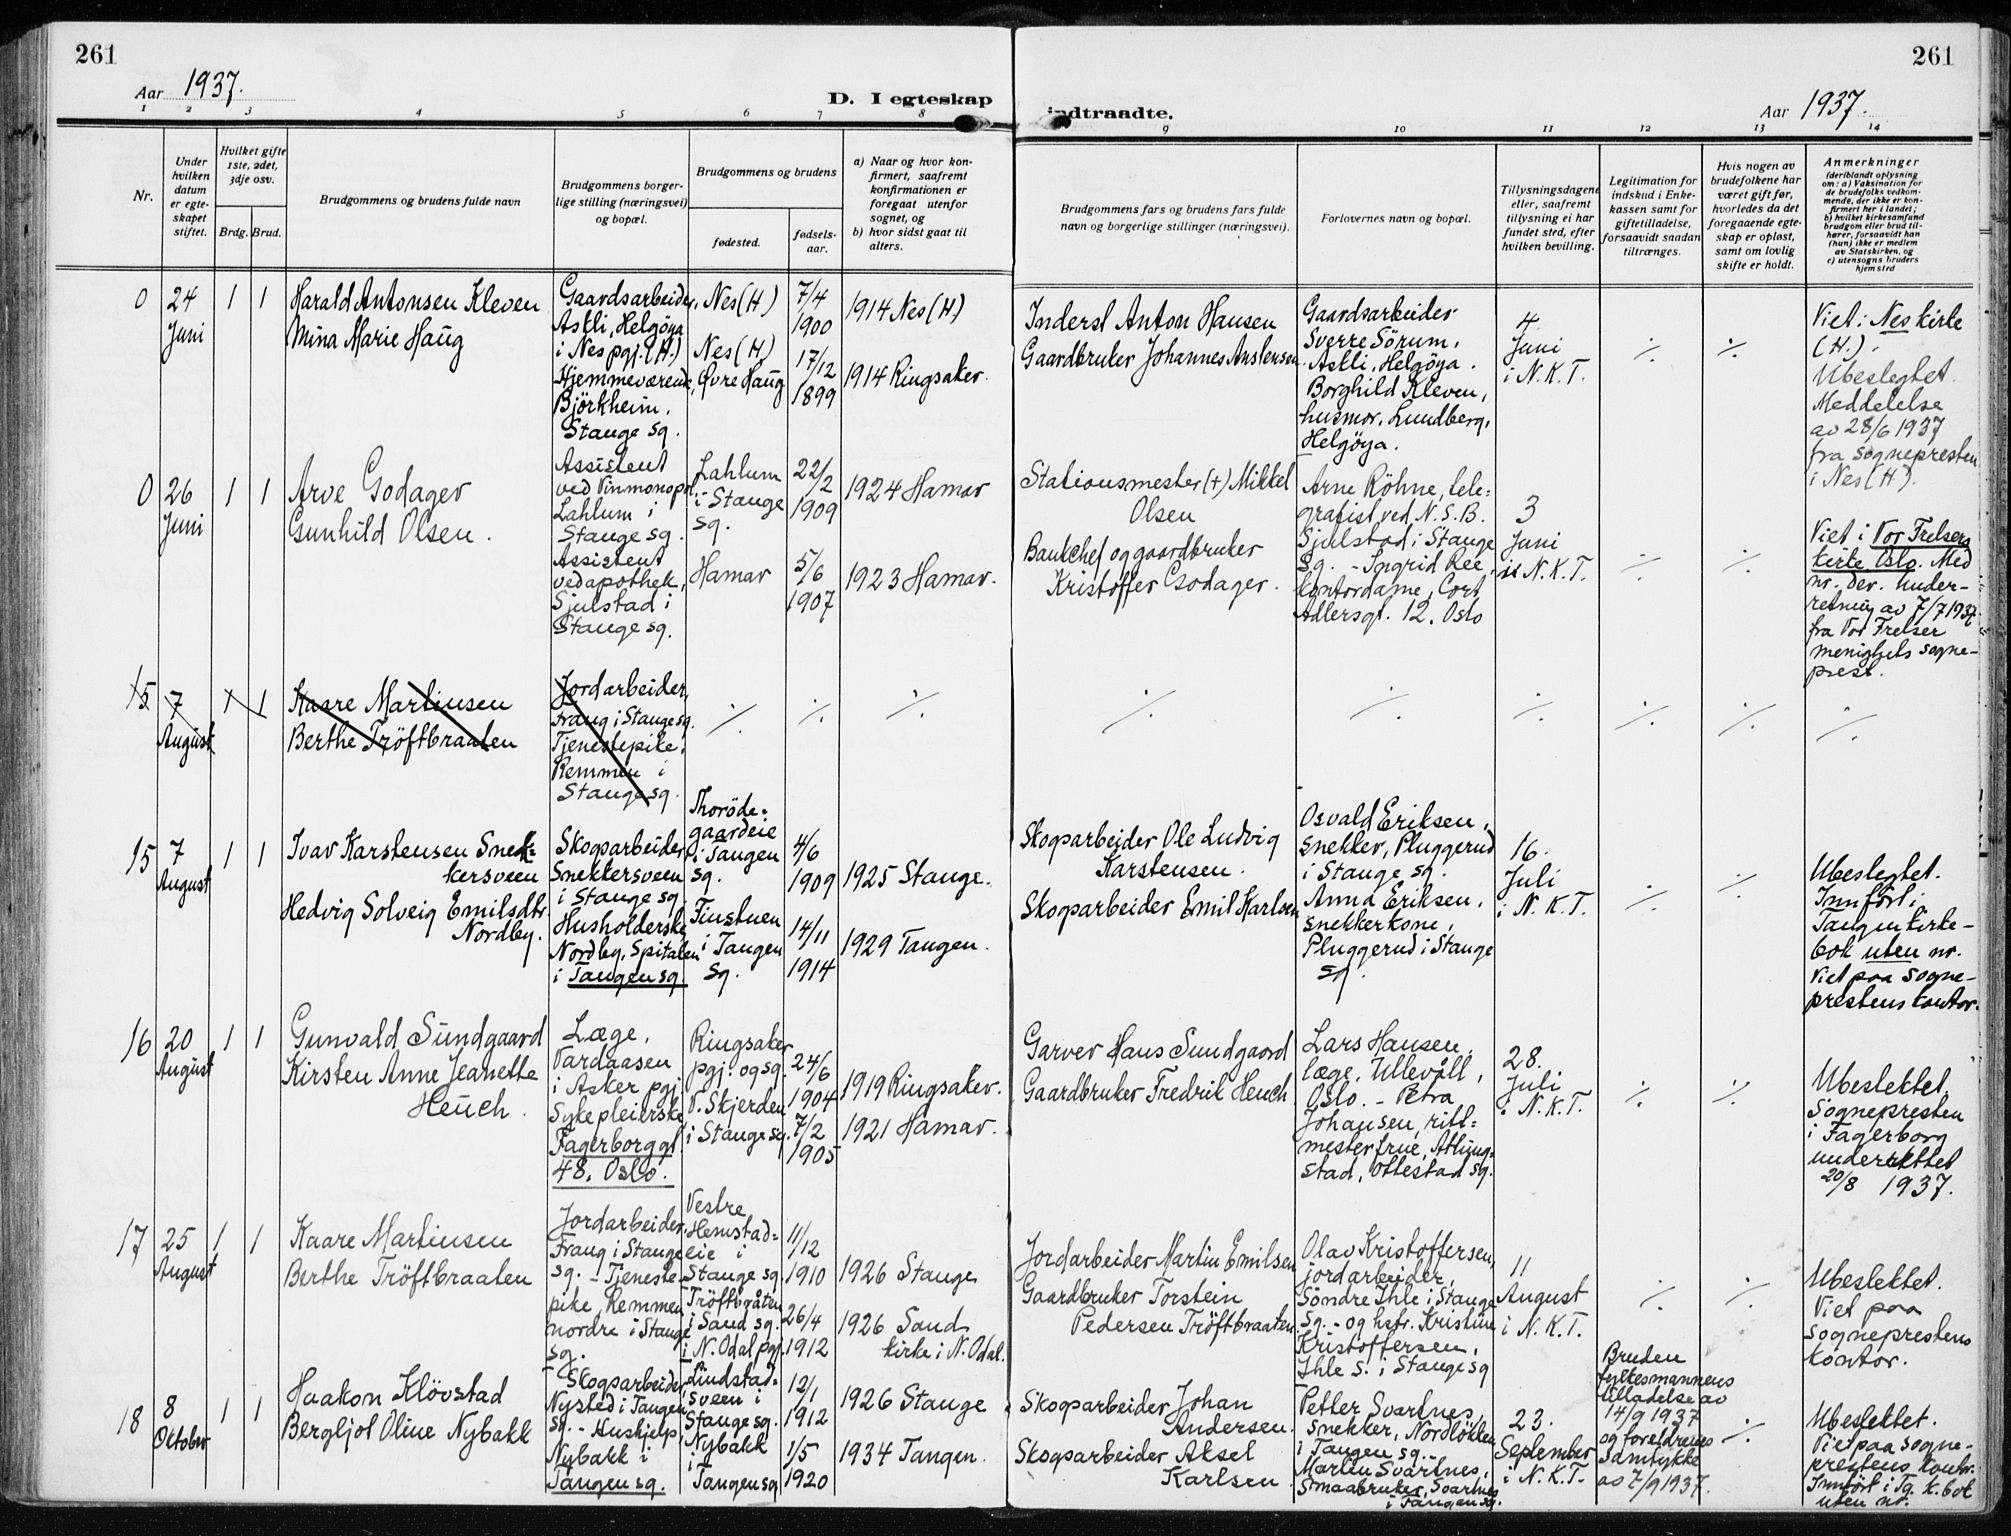 261
261
Aar 1937.
D. I egteskap
indtraadte.
Aar 1937.
1 2 3 4 5 6 7 8
9 10 11 12 13 14
Nr.
Under
hvilken
datum
er egte-
skapet
stiftet.
Hvilket gifte
1ste, 2det,
3dje osv.
Brdg. Brud.
Brudgommens og brudens fulde navn
Brudgommens borger-
lige stilling (næringsvei)
og bopæl.
Brudgommens og brudens
fødested.
fødsels-
aar.
a) Naar og hvor kon-
firmert, saafremt
konfirmationen er
foregaat utenfor
sognet, og
b) hvor sidst gaat til
alters.
Brudgommens fars og brudens fars fulde
navn og borgerlige stillinger (næringsvei).
Forlovernes navn og bopæl.
Tillysningsdagene
eller, saafremt
tillysning ei har
fundet sted, efter
hvilken bevilling.
Legitimation for
indskud i Enke-
kassen samt for
giftetilladelse,
forsaavidt saadan
tiltrænges.
Hvis nogen av
brudefolkene har
været gift før,
hvorledes da det
foregaaende egte-
skap er opløst,
samt om lovlig
skifte er holdt.
Anmerkninger
(deriblandt oplysning
om: a) Vaksination for
de brudefolks vedkom-
mende, der ikke er kon-
firmert her i landet;
b) hvilket kirkesamfund
brudgom eller brud til-
hører, forsaavidt han
(hun) ikke er medlem
av Statskirken, og
c) utensogns bruders
hjemsted
0
24
Juni
1 1
Harald Antonsen Kleven
Mina Marie Haug
Gaardsarbeider,
Astli, Helgöya
i Nes pgj. (H.)
Hjemmeværende,
Björkheim,
Stange sg.
Nes (H)
Nes (H)
Øvre Haug
7/4
1900
17/12
1899
1914 Nes (H)
1914 Ringsaker.
Inderst Anton Hansen
Gaardbruker Johannes Anstensen.
Gaardsarbeider
Sverre Sörum,
Astli, Helgöya.
Borghild Kleven,
husmor, Lundberg,
Helgöya.
4.
Juni
i N.K.T.
./.
./.
Viet i Nes kirke
(H.).
Ubeslegtet.
Meddelelse
av 28/6 1937
fra sognepresten
i Nes (H).
0
26
Juni
1 1
Arve Godager
Gunhild Olsen.
Assistent
ved Vinmonopol
Lahlum i
Stange sg.
Assistent
ved apothek,
Sjulstad i
Stange sg.
Lahlum
i Stange
sg.
Hamar
22/2
1909
5/6
1907
1924 Hamar
1923 Hamar.
Stationsmester (+) Mikkel
Olsen
Bankchef og gaardbruker
Kristoffer Godager.
Arne Röhne, tele-
grafist ved N.S.B.
Sjulstad i Stange
sg. - Ingrid Ree,
kontordame, Cort
Adlersgt. 12. Oslo
3
Juni
i N.K.T.
./.
./.
Viet i Vor Frelsers
kirke Oslo. Med
nr. der. Under-
retning av 7/7 1937
fra Vor Frelser
menighets sogne-
prest.
15
7
August
1 1
Kaare Martinsen
Berthe Tröftbraaten
Jordarbeider,
Frang i Stange sg.
Tjenestepike,
Remmen i
Stange sg.
./.
./.
./.
./.
./.
./.
./.
./.
./.
15
7
August
1 1
Ivar Karstensen Snek-
kersveen
Hedvig Solveig Emilsdtr.
Nordby.
Skogsarbeider
Snekkersveen
i Stange sg.
Husholderske
Nordby, Spitalen
i Tangen sg.
Thoröde-
gaardeie
i Tangen
sg.
Finstuen
i Tangen
sg.
4/6
1909
14/11
1914
1925 Stange.
1929 Tangen.
Skogsarbeider Ole Ludvig
Karstensen.
Skogsarbeider Emil Karlsen
Osvald Eriksen,
snekker, Pluggerud
i Stange sg.
Anna Eriksen,
snekkerkone,
Pluggerud i Stange
sg.
16.
Juli
i N.K.T.
./.
./.
Ubeslegtet.
Innfört i
Tangen kirke-
bok uten nr.
Viet paa sogne-
prestens kontor.
16
20
August
1 1
Gunvald Sundgaard
Kirsten Anne Jeanette
Heuch.
Læge,
Vardaasen
i Asker pgj.
Sykepleierske
Fagerborggt.
48. Oslo.
Ringsaker
pgj. og sg.
V. Skjerden
i Stange sg.
24/6
1904
7/2
1905
1919 Ringsaker.
1921 Hamar.
Garver Hans Sundgaard
Gaardbruker Fredrik Heuch
Lars Hansen,
læge, Ullevåll,
Oslo. - Petra
Johansen, ritt-
mesterfrue, Atlung-
stad, Ottestad sg.
28.
Juli
i N.K.T.
./.
./.
Ubeslektet.
Sognepresten
i Fagerborg
underrettet
20/8 1937.
17
25
August
1 1
Kaare Martinsen
Berthe Tröftbraaten
Jordarbeider,
Frang i Stange
sg. - Tjeneste-
pike, Remmen
nordre i Stange
sg.
Vestre
Hemstad-
eie i
Stange sg.
Tröftbråten
i Sand sg.
i N. Odal pgj.
11/12
1910
26/4
1912
1926 Stange
1926 Sand
kirke i N. Odal.
Jordarbeider Martin Emilsen
Gaardbruker Torstein
Pedersen Tröftbraaten.
Olav Kristoffersen,
jordarbeider,
Söndre Ihle i Stange
sg. - og hstr. Kristine
Kristoffersen,
Ihle S. i Stange sg
11
August
i N.K.T.
./.
./.
Ubeslektet.
Viet paa
sogneprestens
kontor.
18
8
Oktober
1 1
Haakon Klövstad
Bergljot Oline Nybakk
Skogsarbeider,
Nysted i Tangen
sg. - Hushjelp,
Nybakk i
Tangen sg.
Lindstad-
sveen i
Stange sg.
Nybakk
i
Tangen sg
12/1
1912
1/5
1920
1926 Stange
1934 Tangen.
Skogsarbeider Johan
Andersen.
Skogsarbeider Aksel
Karlsen
Petter Svartnes,
snekker, Nordlökken
i Tangen sg. -
Martin Svartnes,
smaabruker, Svartnes
i Tangen sg.
23.
September
i N.K.T.
Bruden
fylkesmannens
tilladelse av
14/9 1937
og foreldrenes
samtykke
av 7/9 1937.
./.
Ubeslektet.
Viet paa sogne-
prestens kontor.
Innfört i Tg. k. bok
uten nr.